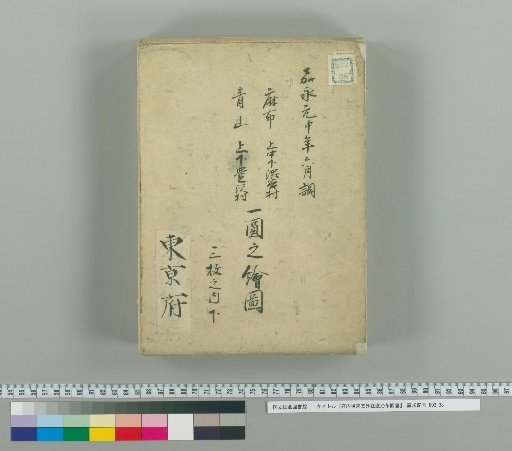 嘉永元申年六月調
麻布 上中下渋谷村
青山 上下豊沢村
一圓之繪圖
三枚之内 下
東京府